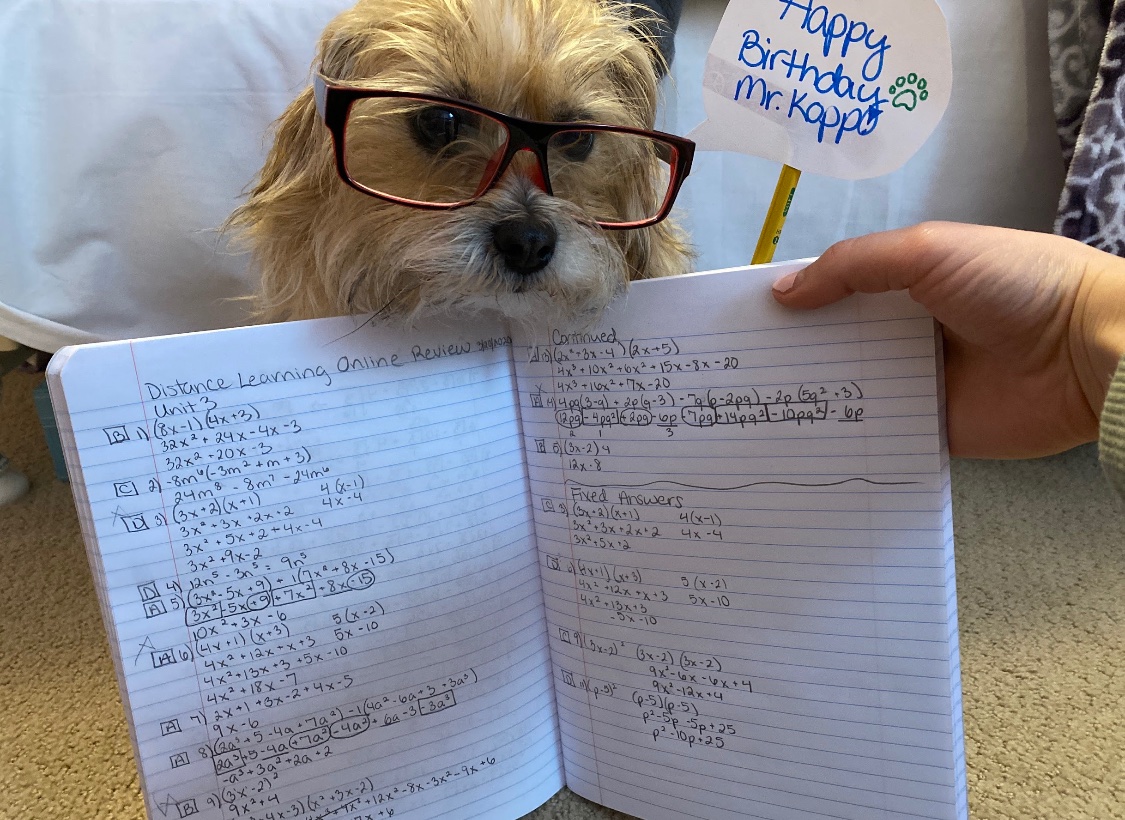 Happy
Birthday
Mr. Kappo
Distance Learning Online Review
Unit 3
B 1) (8x-1)(4x+3)
32x² + 24x - 4x - 3
32x² + 20x - 3
C 2) -8m⁶(-3m² + m + 3)
24m⁸ - 8m⁷ - 24m⁶
D 3) (3x+2)(x+1) 4(x-1)
3x² + 3x + 2x - 2 4x - 4
3x² + 5x + 2 + 4x - 4
3x² + 9x - 2
D 4) 12n⁵ - 3n⁵ = 9n⁵
A 5) (3x² - 5x + 9) + 1(7x² + 8x - 15)
3x² - 5x + 9 + 7x² + 8x - 15
10x² + 3x - 6
A 6) (4x+1)(x+3) 5(x-2)
4x² + 12x + x + 3 5x - 10
4x² + 13x + 3 + 5x - 10
4x² + 18x - 7
A 7) 2x + 1 + 3x - 2 + 4x - 5
9x - 6
A 8) (2a³ + 5 - 4a + 7a²) - 1(4a² - 6a + 3 + 3a³)
2a³ + 5 - 4a + 7a² - 4a² + 6a - 3 - 3a³
-a³ + 3a² + 2a + 2
B 9) (3x-2)²
9x² + 4
-4x-3)(x²+3x-2)
+12x² - 8x - 3x² - 9x + 6
7x + 6
Continued
(2x² + 3x - 4)(2x + 5)
4x³ + 10x² + 6x² + 15x - 8x - 20
4x³ + 16x² + 7x - 20
4pq(3-q) + 2p(q-3) - 7q(p-2pq) - 2p(5q² + 3)
12pq - 4pq² + 2pq - 6p - 7pq + 14pq² - 10pq² - 6p
2 1 3
B 5) (3x-2)4
12x - 8
Fixed Answers
C 3) (3x+2)(x+1) 4(x-1)
3x² + 3x + 2x + 2 4x - 4
3x² + 5x + 2
6) (4x+1)(x+3) 5(x-2)
4x² + 12x + x + 3 5x - 10
4x² + 13x + 3
-5x - 10
C 9) (3x-2)² (3x-2)(3x-2)
9x² - 6x - 6x + 4
9x² - 12x + 4
D (p-5)² (p-5)(p-5)
p² - 5p - 5p + 25
p² - 10p + 25